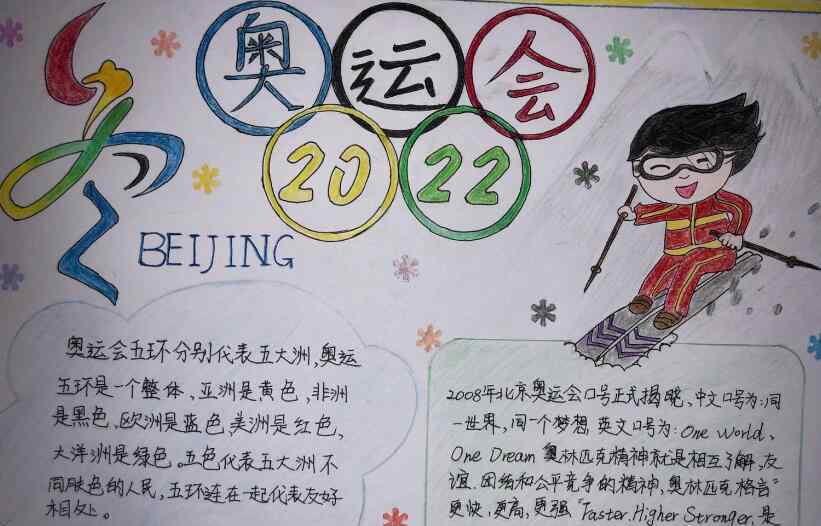 奥运会
2022
BEIJING
奥运会五环分别代表五大洲,奥运
五环是一个整体、亚洲是黄色、非洲
是黑色、欧洲是蓝色、美洲是红色,
大洋洲是绿色。五色代表五大洲不
同肤色的人民,五环连在一起代表友好
相处。
2008年北京奥运会口号正式揭晓、中文口号为:同
一世界,同一个梦想 英文口号为:One World、
One Dream 奥林匹克精神就是相互了解、友
谊、团结和公平竞争的精神,奥林匹克格言"
更快,更高,更强"Faster.Higher Stronger.是